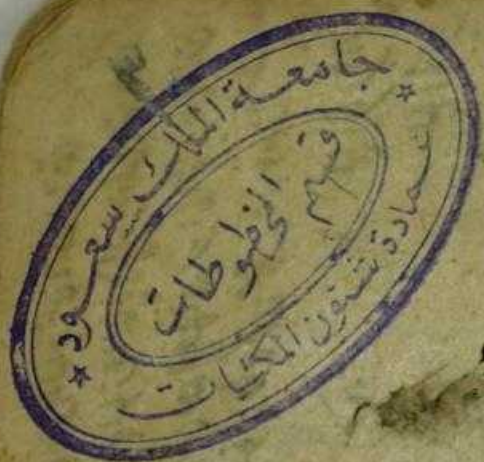 ٣
جامعة الملك سعود
قسم المخطوطات
عمادة شئون المكتبات